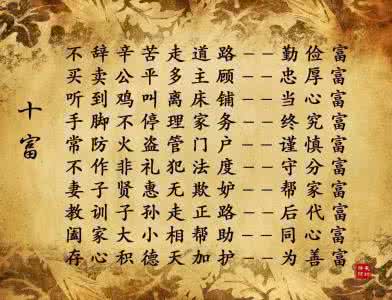 十富
不辞辛苦走道路--勤俭富
买卖公平多主顾--忠厚富
听到鸡叫离床铺--当心富
手脚不停理家务--终究富
常防火盗管门户--谨慎富
不作非礼犯法度--守分富
妻子贤惠无欺妒--帮家富
教训子孙走正路--后代富
阖家大小相帮助--同心富
存心积德天加护--为善富